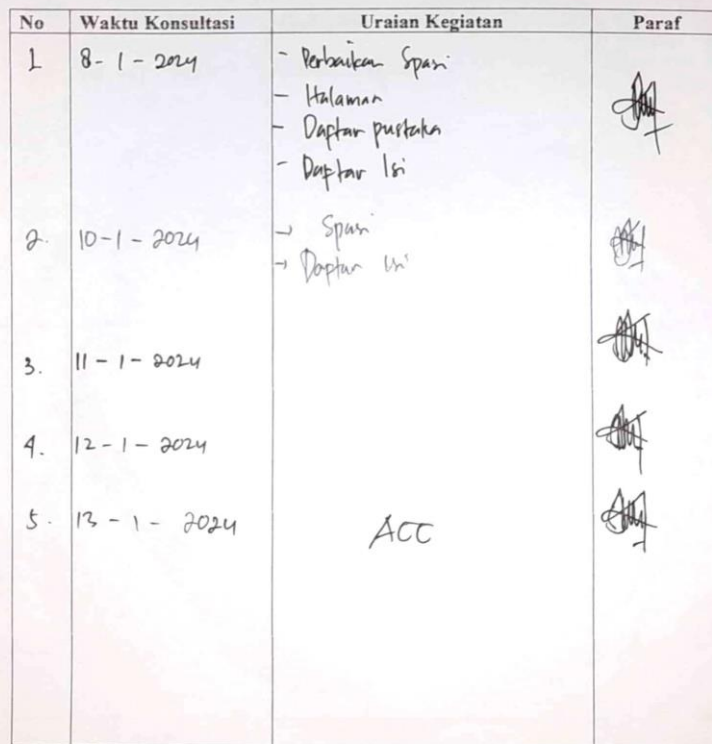 No Waktu Konsultasi Uraian Kegiatan Paraf
1 8-1-2024 - Perbaikan Spasi
- Halaman
- Daftar pustaka
- Daftar Isi
2. 10-1-2024 → Spasi
→ Daftar Isi
3. 11-1-2024
4. 12-1-2024
5. 13-1-2024 ACC